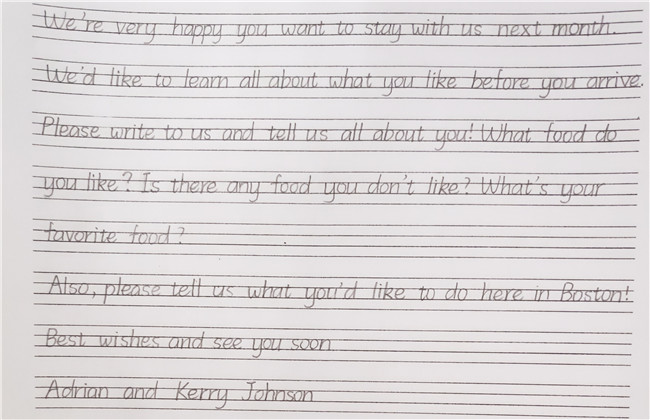 We're very happy you want to stay with us next month.
We'd like to learn all about what you like before you arrive.
Please write to us and tell us all about you! What food do
you like? Is there any food you don't like? What's your
favorite food?
Also, please tell us what you'd like to do here in Boston!
Best wishes and see you soon
Adrian and Kerry Johnson